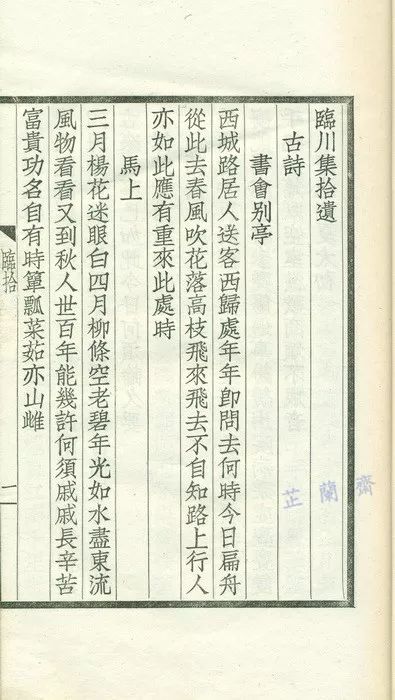 臨川集拾遺
古詩
書會别亭
西城路居人送客西歸處年年卽問去何時今日扁舟
從此去春風吹花落高枝飛來飛去不自知路上行人
亦如此應有重來此處時
馬上
三月楊花迷眼白四月柳條空老碧年光如水盡東流
風物看看又到秋人世百年能幾許何須戚戚長辛苦
富貴功名自有時簞瓢菜茹亦山雌
臨拾
一
芷蘭齋